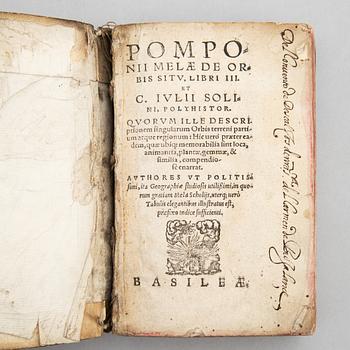 POMPO
NII MELÆ DE OR
BIS SITV, LIBRI III.
ET
C. IVLII SOLI
NI, POLYHISTOR.
QVORVM ILLE DESCRI
ptionem singularum Orbis terreni parti-
um atque regionum: Hic uerò præter ea-
dem, quæ ubiq; memorabilia sint loca,
animantia, plantæ, gemmæ, &
similia, compendio-
sè enarrat.
AVTHORES VT POLITIS
simi, ita Geographiæ studiosis utilissimi, in quo-
rum gratiam Mela Scholijs, uterq; uerò
Tabulis elegantibus illustratus est,
præfixo indice sufficienti.
BASILEÆ
Del Conuento de
del Carmen de